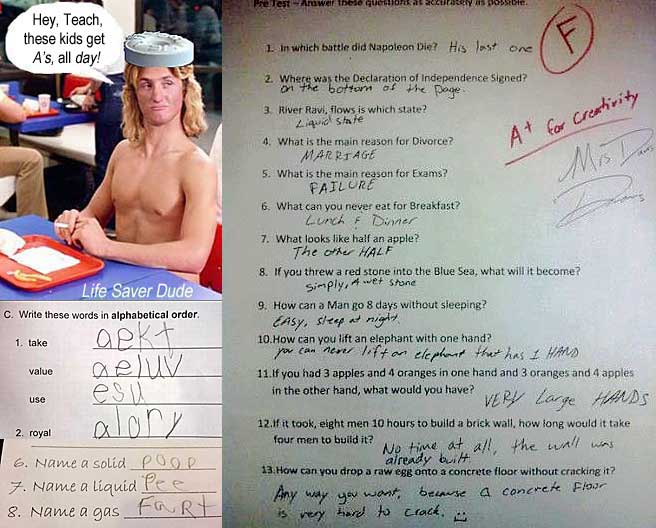 Hey, Teach,
these kids get
A's, all day!
Life Saver Dude
C. Write these words in alphabetical order.
1. take aekt
value aeluv
use esu
2. royal alory
6. Name a solid poop
7. Name a liquid Pee
8. Name a gas Fart
Pre Test - Answer these questions as accurately as possible.
F
1. In which battle did Napoleon Die? His last one
2. Where was the Declaration of Independence Signed?
on the bottom of the page.
3. River Ravi, flows is which state?
Liquid state
A+ for Creativity
4. What is the main reason for Divorce?
MARRIAGE
Mrs Davis
5. What is the main reason for Exams?
FAILURE
6. What can you never eat for Breakfast?
Lunch & Dinner
7. What looks like half an apple?
The other HALF
8. If you threw a red stone into the Blue Sea, what will it become?
simply, A wet stone
9. How can a Man go 8 days without sleeping?
EASy, sleep at night.
10.How can you lift an elephant with one hand?
you can never lift an elephant that has 1 HAND
11.If you had 3 apples and 4 oranges in one hand and 3 oranges and 4 apples
in the other hand, what would you have?
VERY Large HANDS
12.If it took, eight men 10 hours to build a brick wall, how long would it take
four men to build it?
No time at all, the wall was
already built.
13.How can you drop a raw egg onto a concrete floor without cracking it?
Any way you want, because a concrete floor
is very hard to crack.